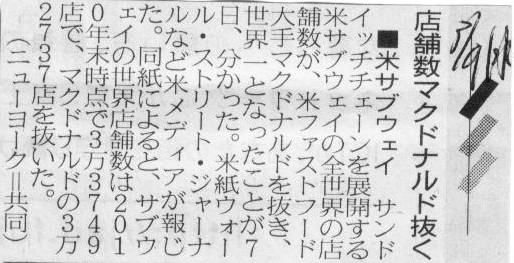 店舗数マクドナルド抜く
■米サブウェイ　サンド
イッチチェーンを展開する
米サブウェイの全世界の店
舗数が、米ファストフード
大手マクドナルドを抜き、
世界一となったことが7
日、分かった。米紙ウォー
ル・ストリート・ジャーナ
ルなど米メディアが報じ
た。同紙によると、サブウ
ェイの世界店舗数は201
0年末時点で3万3749
店で、マクドナルドの3万
2737店を抜いた。
（ニューヨーク＝共同）